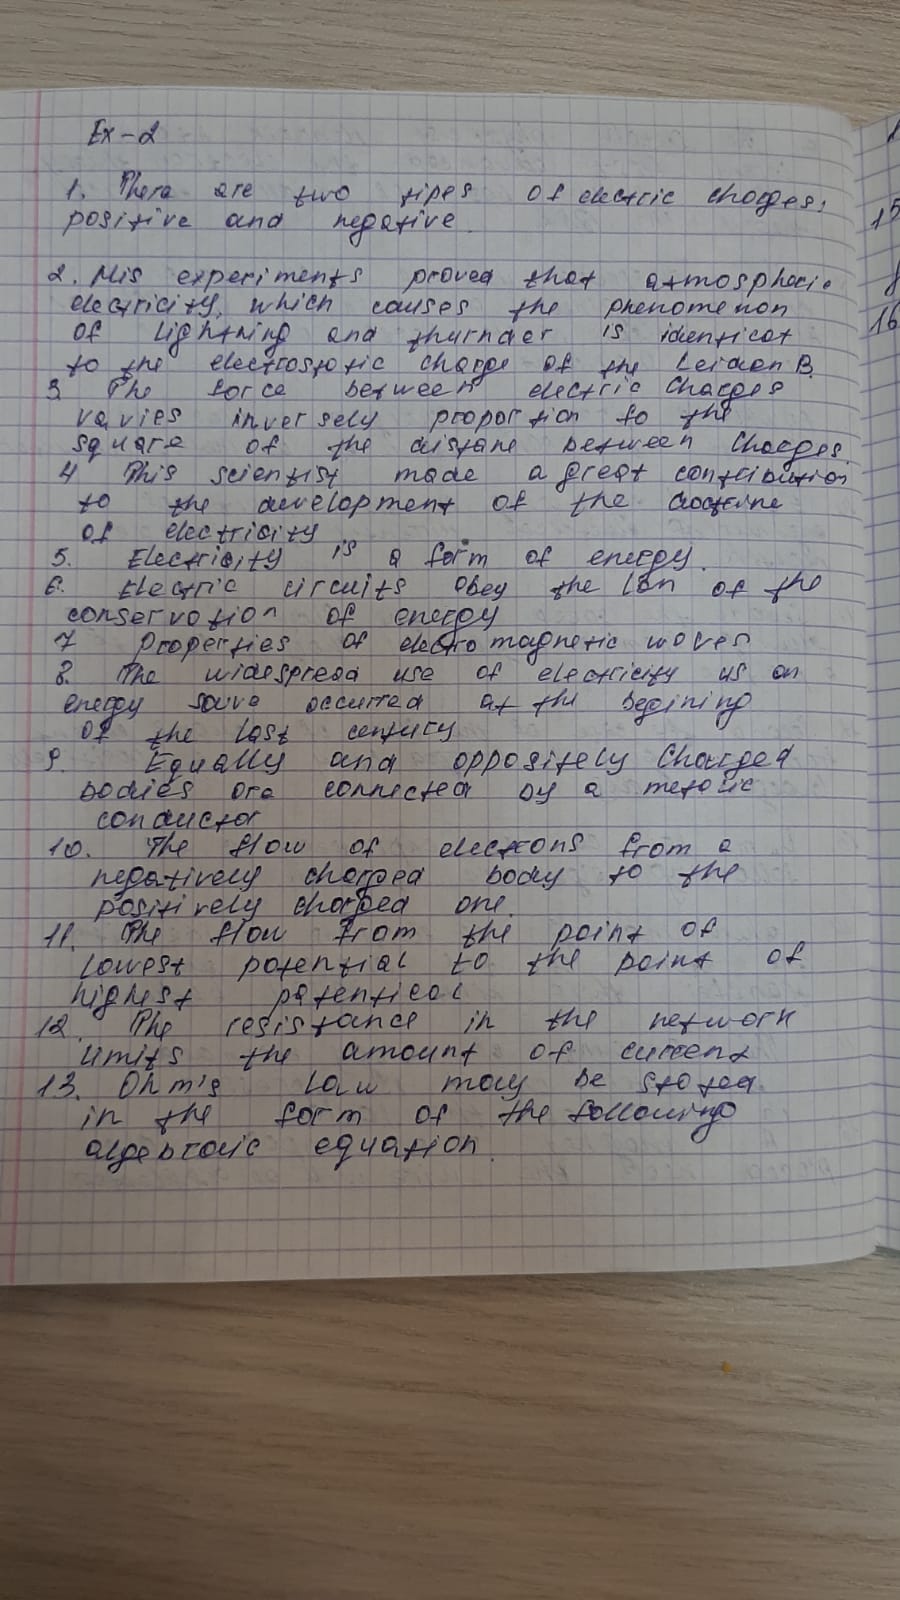 Ex-2
1. There are two tipes of electric charges:
positive and negative.
2. His experiments proved that atmospheric
electricity, which causes the phenomenon
of lightning and thurnder is identicat
to the electrostatic charge of the Leiden B.
3. The force between electric charges
varies inversely proportion to the
square of the distane between charges.
4 This scientist made a great contribution
to the development of the doctrine
of electricity
5. Electricity is a form of energy.
6. Electric circuits obey the lan of the
conservation of energy
7 Properties of electromagnetic waves
8. The widespread use of electricity as an
energy sourve occurred at the begining
of the last century
9. Equally and oppositely charged
bodies are connected by a metalic
conductor
10. The flow of electrons from a
negatively charged body to the
positively charged one.
11. The flow from the point of
lowest potential to the point of
highest potentical
12. The resistance in the network
limits the amount of current
13. Ohm's law may be stated
in the form of the following
algebraic equation.
15
8
16